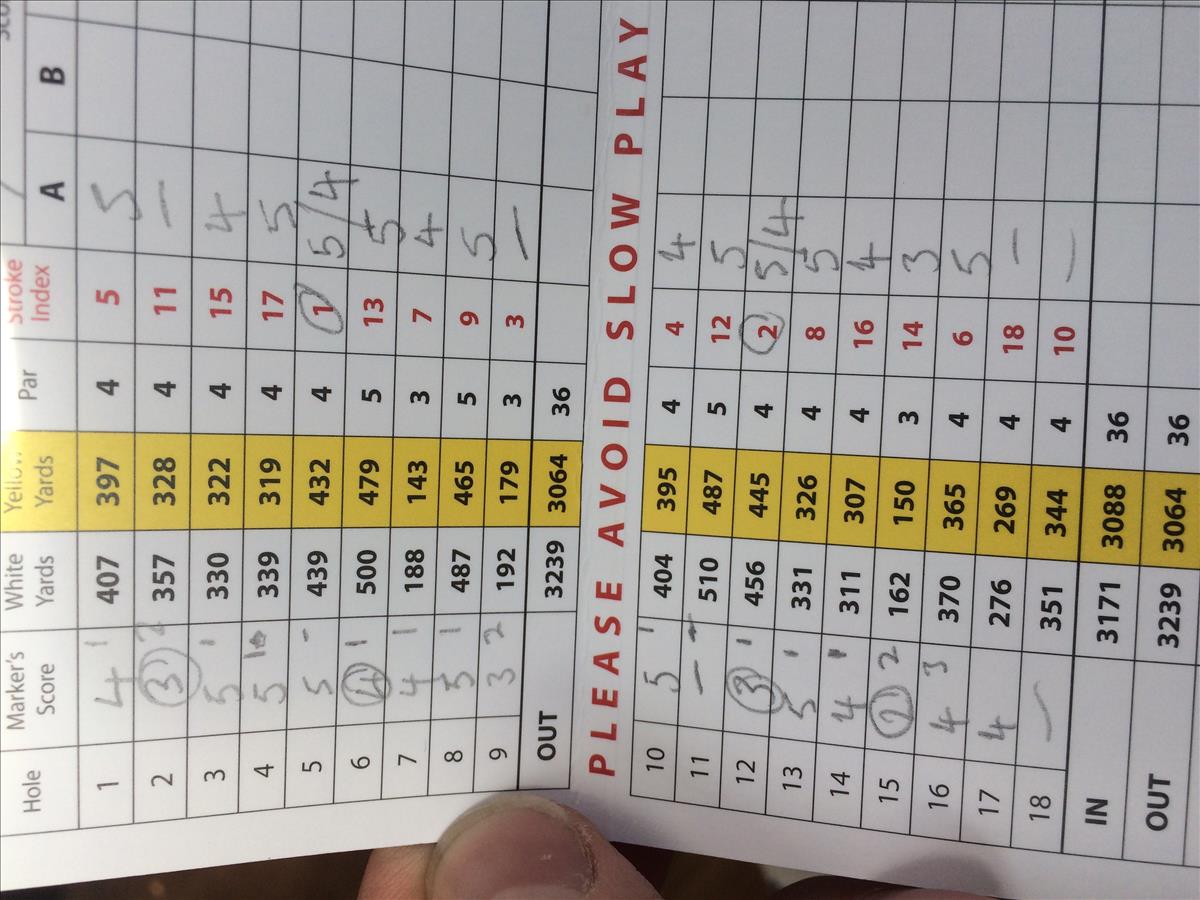 Hole Marker's Score White Yards Yellow Yards Par Stroke Index A B
1 4 1 407 397 4 5 5
2 3 2 357 328 4 11 —
3 5 1 330 322 4 15 4
4 5 339 319 4 17 5
5 5 - 439 432 4 1 5/4
6 4 1 500 479 5 13 5
7 4 1 188 143 3 7 4
8 5 1 487 465 5 9 5
9 3 2 192 179 3 3 —
OUT 3239 3064 36
PLEASE AVOID SLOW PLAY
10 5 1 404 395 4 4 4
11 — 510 487 5 12 5
12 3 1 456 445 4 2 5/4
13 5 1 331 326 4 8 5
14 4 1 311 307 4 16 4
15 2 2 162 150 3 14 3
16 4 3 370 365 4 6 5
17 4 276 269 4 18 —
18 — 351 344 4 10 —
IN 3171 3088 36
OUT 3239 3064 36